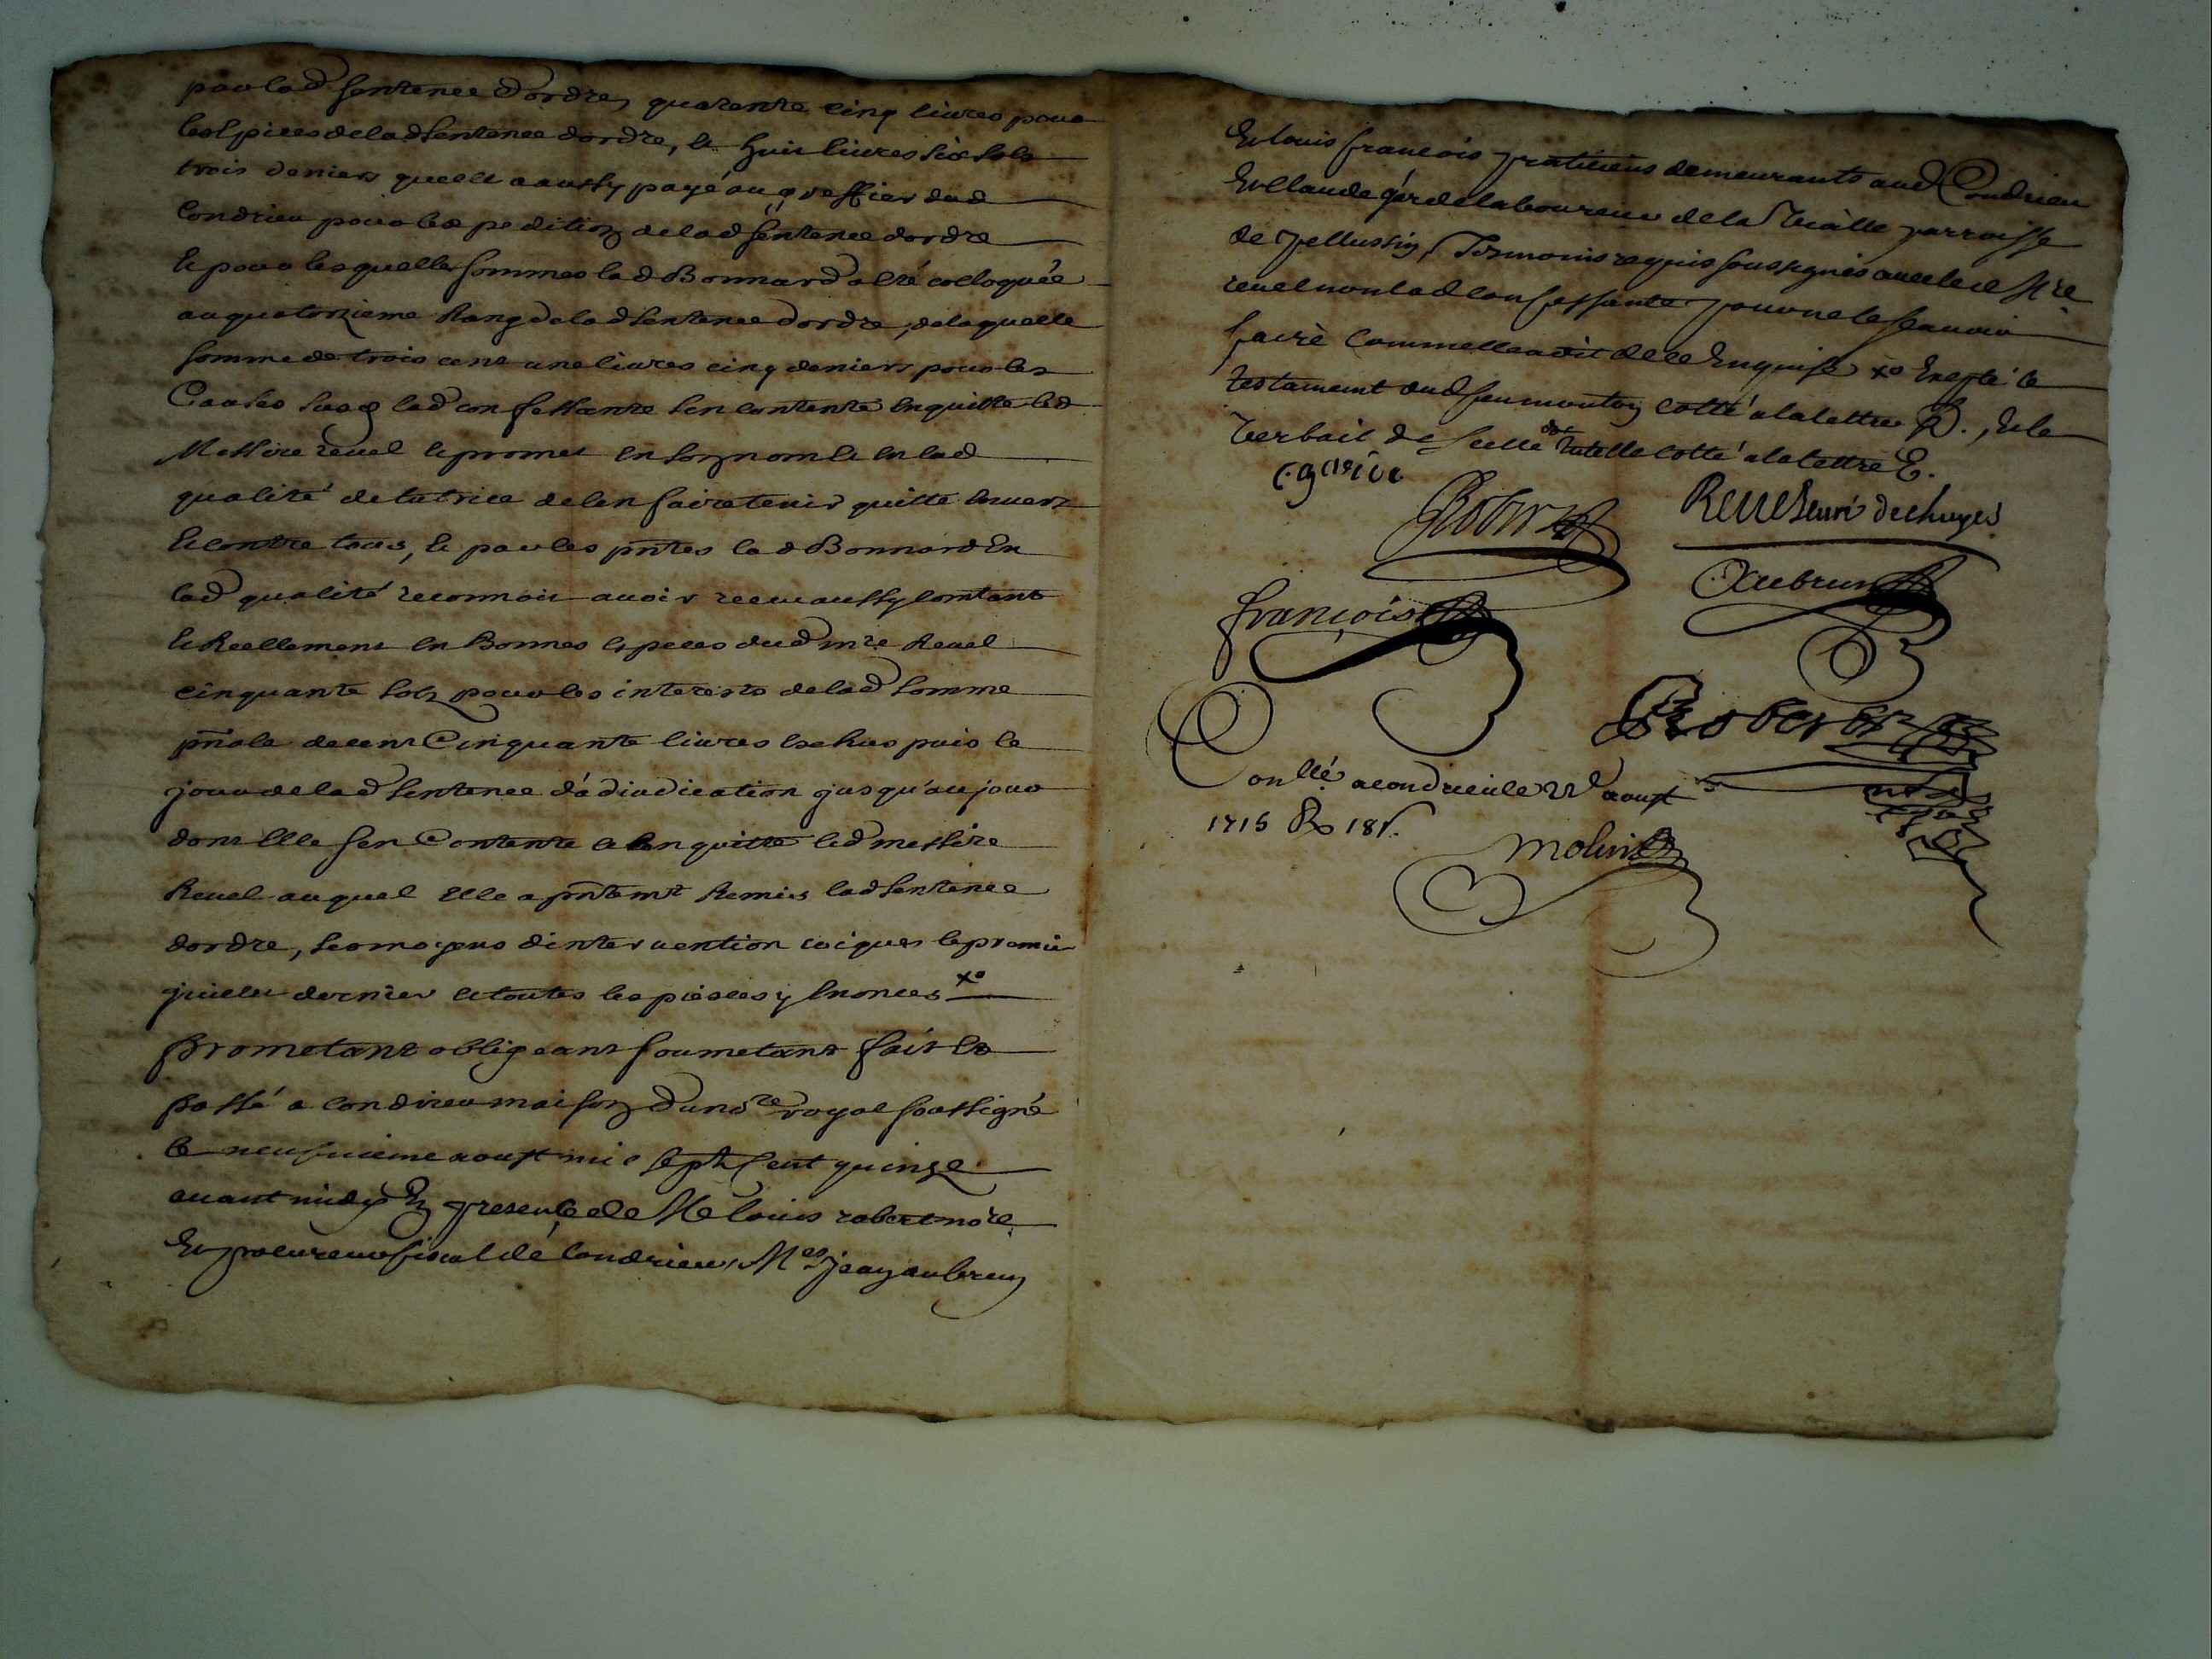 par lad sentence dordre, quarente cinq livres pour
les Espices de lad sentence dordre, et huit livres six sols
trois deniers quelle a aussy payé au greffier dud
Condrieu pour lexpedition de lad sentence dordre
Et pour lesquelles sommes lad Bonnard a esté colloquée
au quatorzieme Rang de lad sentence dordre, de laquelle
somme de trois cent une livres cinq deniers pour les
Causes susd lad confessante sen contente en quitte led
Messire revel et promet en son nom et en lad
qualité de tutrice de len faire tenir quitte envers
Et contre tous, et par les pntes lad Bonnard En
lad qualité reconnoit avoir receu aussy contant
et Reellement en Bonnes especes dud mre Revel
cinquante solz pour les interests de lad somme
pnale de cent Cinquante livres eschus puis le
jour de lad sentence d'adiudication jusqu'au jour
dont Elle sen Contente et en quitte led messire
Revel auquel Elle a pntemt Remis lad sentence
dordre, les moyens dintervention du premier
juillet dernier et toutes les pieces y enonces xo
Prometant obligeant soumetant fait et
passé a condrieu maison du nore royal soussigné
le neufvieme aoust mil sept cent quinze
avant midy En presence de Me louis robert nore
Et procureur fiscal de Condrieu, Mes aubrun
Et louis francois praticiens demeurants aud Condrieu
Et Claude laboureur de la parroisse
de pellussin, Tesmoins requis soussignés avec led Mre
revel non lad confessante pour ne le scavoir
faire comme elle a dit de ce Enquise xo Excepté le
testament dud feu mouton cotté a la lettre D., Et le
verbail de scellé et tutelle cotté a la lettre E.
Robert
Revel curé de chuyes
françois
Aubrun
Robert
Conllé a condrieu le 22e aoust
1715 R 18s.
molin